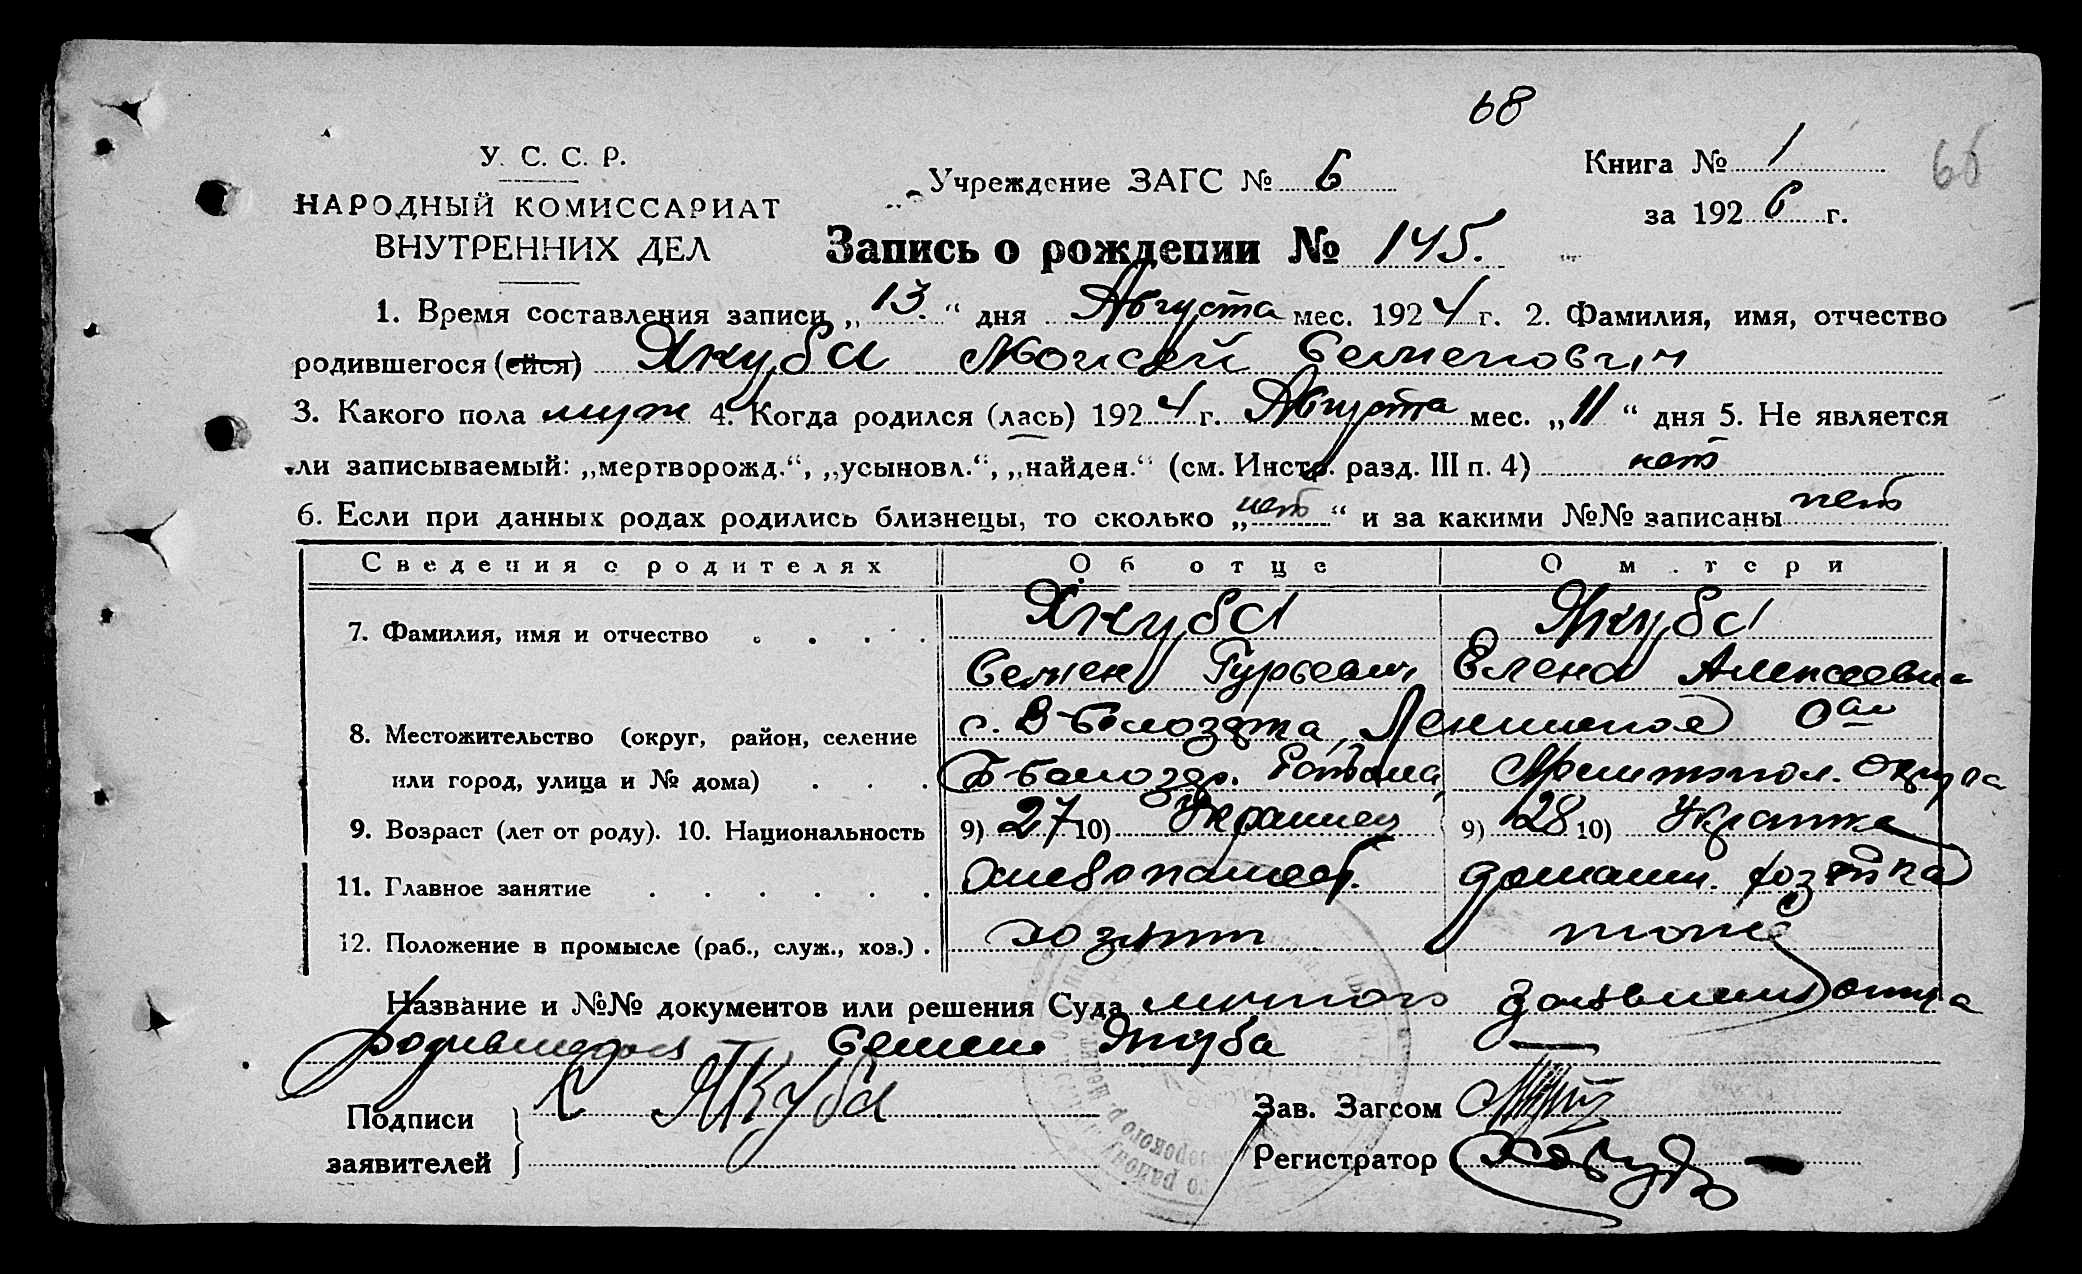 68
У. С. С. Р.
НАРОДНЫЙ КОМИССАРИАТ
ВНУТРЕННИХ ДЕЛ
Учреждение ЗАГС № 6
Книга № 1
за 1926 г.
66
Запись о рождении № 145.
1. Время составления записи „13.“ дня Августа мес. 1924 г. 2. Фамилия, имя, отчество
родившегося (ейся) Якуба Моисей Семенович
3. Какого пола муж 4. Когда родился (лась) 1924 г. Августа мес. „11“ дня 5. Не является
ли записываемый: „мертворожд.“, „усыновл.“, „найден.“ (см. Инстр. разд. III п. 4) нет
6. Если при данных родах родились близнецы, то сколько „нет“ и за какими №№ записаны нет
Сведения о родителях Об отце О матери
7. Фамилия, имя и отчество Якуба Якуба
Семен Гурьевич Елена Алексеевна
8. Местожительство (округ, район, селение с. В-Белозерка,
или город, улица и № дома) В-Белозер. Района, Мелитопол. Округа
9. Возраст (лет от роду). 10. Национальность 9) 27 10) Украинец 9) 28 10) Украинка
11. Главное занятие Хлебопашест. домашн. хозяйка
12. Положение в промысле (раб., служ., хоз.) хозяин
Название и №№ документов или решения Суда личного заявления отца
родившегося Семена Якуба
Подписи
заявителей
С Якуба
Зав. Загсом
Регистратор